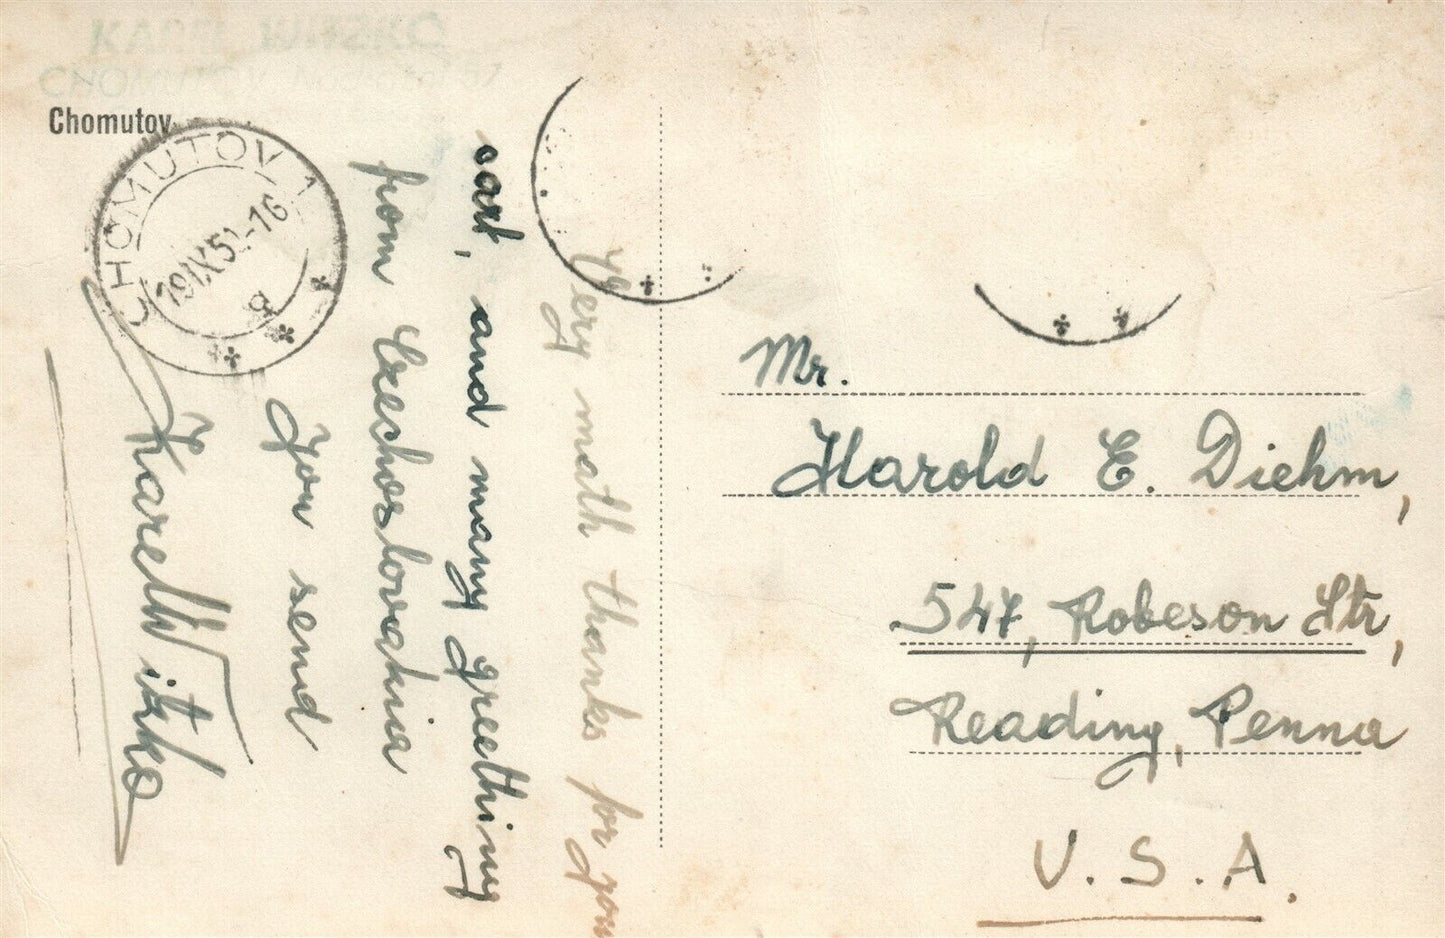 CHOMUTOV
Chomutov
CHOMUTOV 1
a
Very math thanks for your
cart, and many greething
from Czechoslovakia
You send
Karel Witzko
Mr.
Harold E. Diehm,
547, Robeson Str,
Reading, Penna
U.S.A.